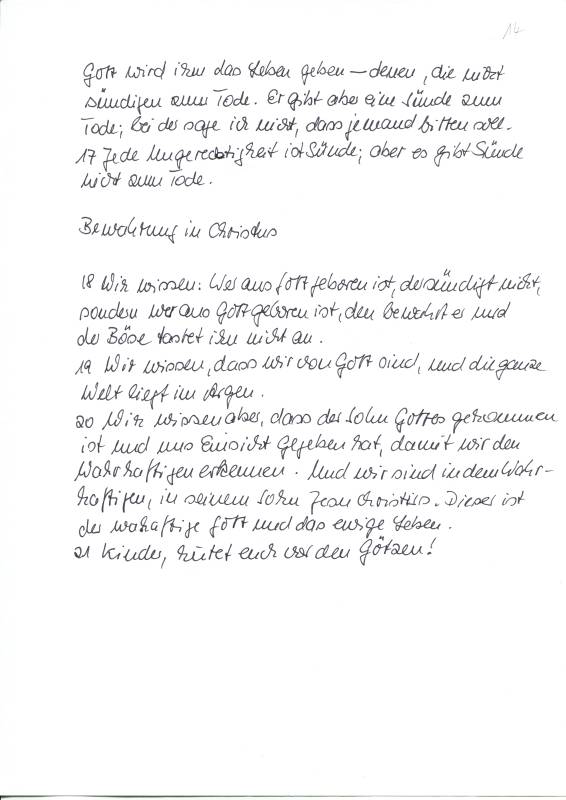 14
Gott wird ihm das Leben geben – denen, die nicht
sündigen zum Tode. Er gibt aber eine Sünde zum
Tode; bei der sage ich nicht, dass jemand bitten soll.
17 Jede Ungerechtigkeit ist Sünde; aber es gibt Sünde
nicht zum Tode.
Bewahrung in Christus
18 Wir wissen: Wer aus Gott geboren ist, der sündigt nicht,
sondern wer aus Gott geboren ist, den bewahrt er und
der Böse tastet ihn nicht an.
19 Wir wissen, dass wir von Gott sind, und die ganze
Welt liegt im Argen.
20 Wir wissen aber, dass der Sohn Gottes gekommen
ist und uns Einsicht gegeben hat, damit wir den
Wahrhaftigen erkennen. Und wir sind in dem Wahr-
haftigen, in seinem Sohn Jesu Christus. Dieser ist
der wahaftige Gott und das ewige Leben.
21 Kinder, hütet euch vor den Götzen!